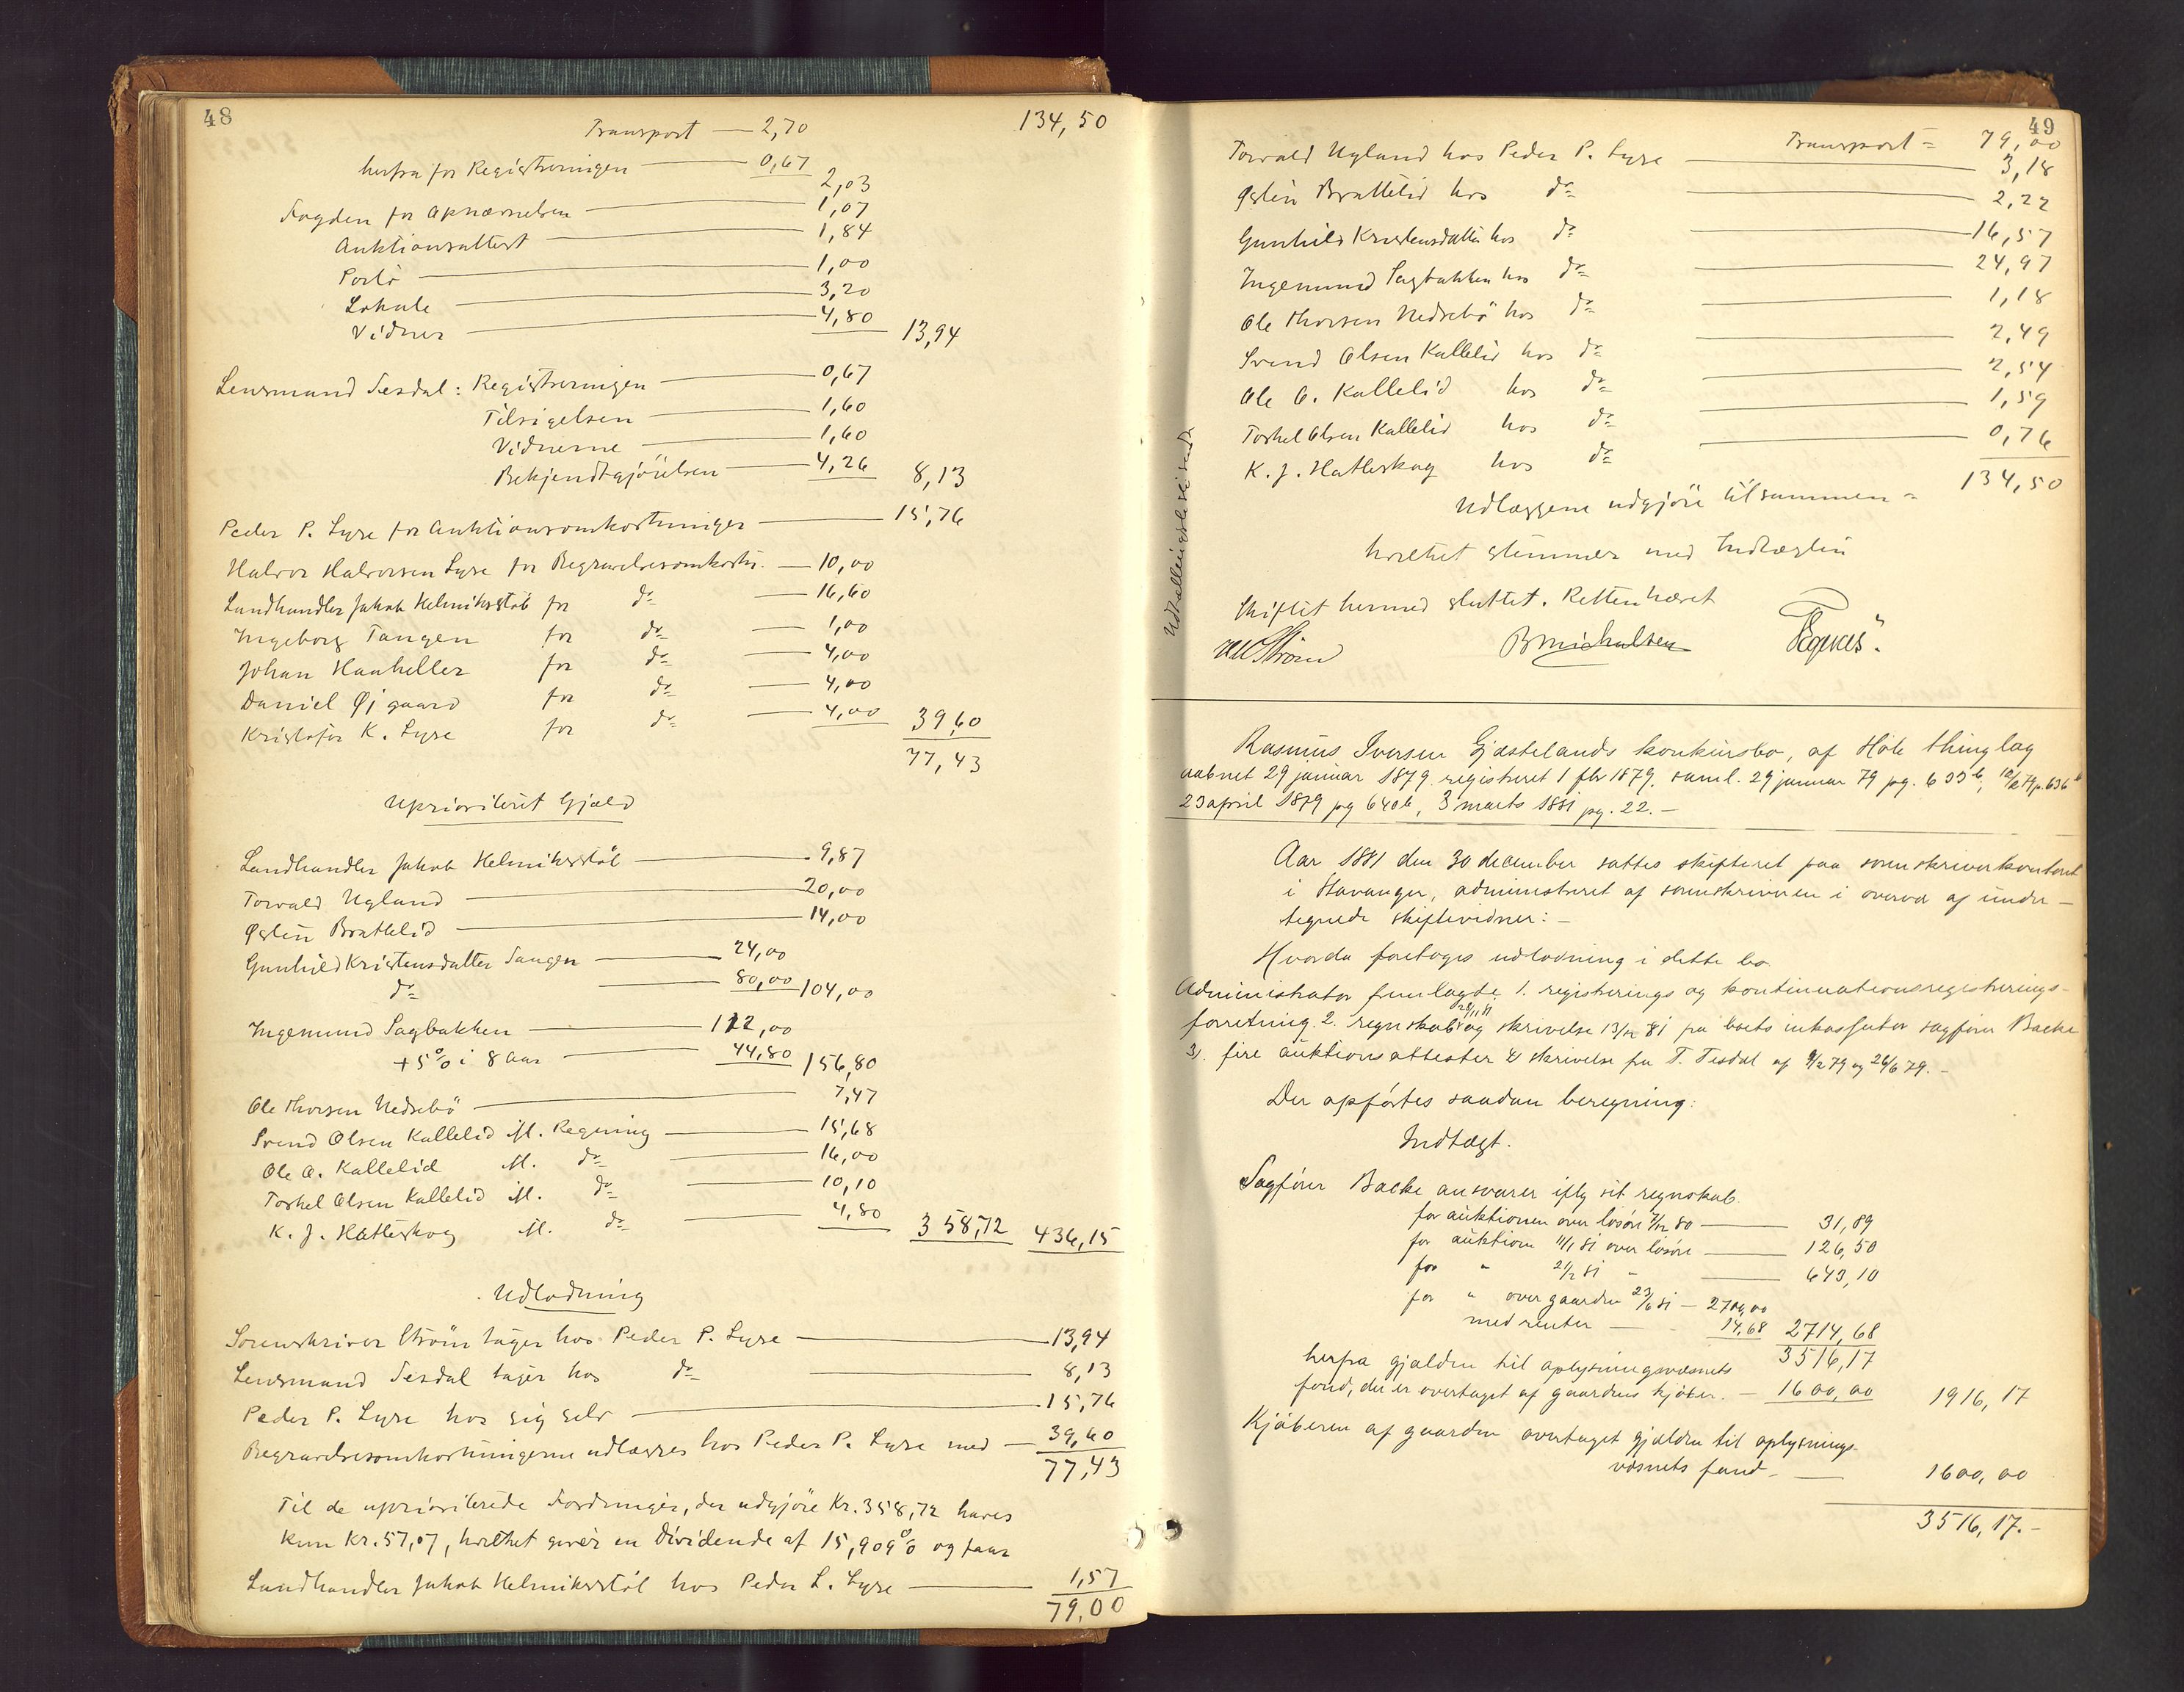 48
Transport — 2,70 134,50
herfra for Registreringen — 0,67 2,03
Fogden for Opnævnelsen — 1,07
Auktionsattest — 1,84
Porto — 1,00
Lokale — 3,20
Vidner — 4,80 13,94
Lensmand Tesdal: Registreringen — 0,67
Tilsigelsen — 1,60
Vidnerne — 1,60
Bekjendtgjörelsen — 4,26 8,13
Peder P. Lyse for Auktionsomkostninger — 15,76
Halvor Halvorsen Lyse for Begravelsesomkostn. — 10,00
Landhandler Jakob Helmiksstöl for do — 16,60
Ingeborg Tangen for do — 1,00
Johan Haaheller for do — 4,00
Daniel Øigaard for do — 4,00
Kristofer K. Lyse for do — 4,00 39,60
77,43
Uprioriteret Gjæld
Landhandler Jakob Helmiksstöl — 9,87
Torvald Uyland — 20,00
Östen Brattelid — 14,00
Gunhild Kristensdatter Tangen — 24,00
do — 80,00 104,00
Ingemund Sagbakken — 112,00
+ 5% i 8 Aar — 44,80 156,80
Ole Thorsen Nedrebö — 7,47
Svend Olsen Kallelid ifl. Regning — 15,68
Ole O. Kallelid ifl. do — 16,00
Torkel Olsen Kallelid ifl. do — 10,10
K. J. Hatleskog ifl. do — 4,80 358,72 436,15
Udlodning
Sorenskriver Ström tager hos Peder P. Lyse — 13,94
Lensmand Tesdal tager hos do — 8,13
Peder P. Lyse hos sig selv — 15,76
Begravelsesomkostningerne udlægges hos Peder P. Lyse med — 39,60
77,43
Til de uprioriterede Fordringer, der udgjöre Kr. 358,72 haves
kun Kr. 57,07, hvilket giver en Dividende af 15,909% og faar
Landhandler Jakob Helmiksstöl hos Peder P. Lyse — 1,57
79,00
49
Transport = 79,00
Torvald Uyland hos Peder P. Lyse — 3,18
Östen Brattelid hos do — 2,22
Gunhild Kristensdatter hos do — 16,57
Ingemund Sagbakken hos do — 24,97
Ole Thorsen Nedrebö hos do — 1,18
Svend Olsen Kallelid hos do — 2,49
Ole O. Kallelid hos do — 2,54
Torkel Olsen Kallelid hos do — 1,59
K. J. Hatleskog hos do — 0,76
Udlæggene udgjöre tilsammen = 134,50
hvilket stemmer med Indtægten
Skiftet hermed sluttet. Retten hævet
Ström B Michalsen
Rasmus Iversen Gjestelands konkursbo, af Hole thinglag
aabnet 29 januar 1879 registreret 1 fbr 1879, saml. 29 januar 79 pg. 633b, 12/2 79 p. 636b
23 april 1879 pg 640b, 3 marts 1881 pg. 22. —
Aar 1881 den 30 december sattes skifteret paa sorenskriverkontoret
i Stavanger, administreret af sorenskriveren i overvær af under-
tegnede skiftevidner: —
Hvorda foretoges udlodning i dette bo
Administrator fremlagde 1. registrerings og kontinuationsregistrerings-
forretning. 2. regnskab og skrivelse 13/12 81 fra boets inkassator sagfører Backe
3. fire auktionsattester & skrivelse fra T. Tesdal af 9/2 79 og 26/6 79. —
Der opførtes saadan beregning:
Indtægt.
Sagfører Backe ansvarer iflg sit regnskab
for auktionen over løsøre 7/12 80 — 31,89
for auktion 11/1 81 over løsøre — 126,50
for " 21/2 81 — 643,10
for " over gaarden 23/6 81 — 2700,00
med renter — 14,68 2714,68
3516,17
herfra gjælden til oplysningsvæsnets
fond, der er overtaget af gaardens kjøber. — 1600,00 1916,17
Kjøberen af gaarden overtaget gjælden til oplysnings-
væsnets fond — 1600,00
3516,17. —